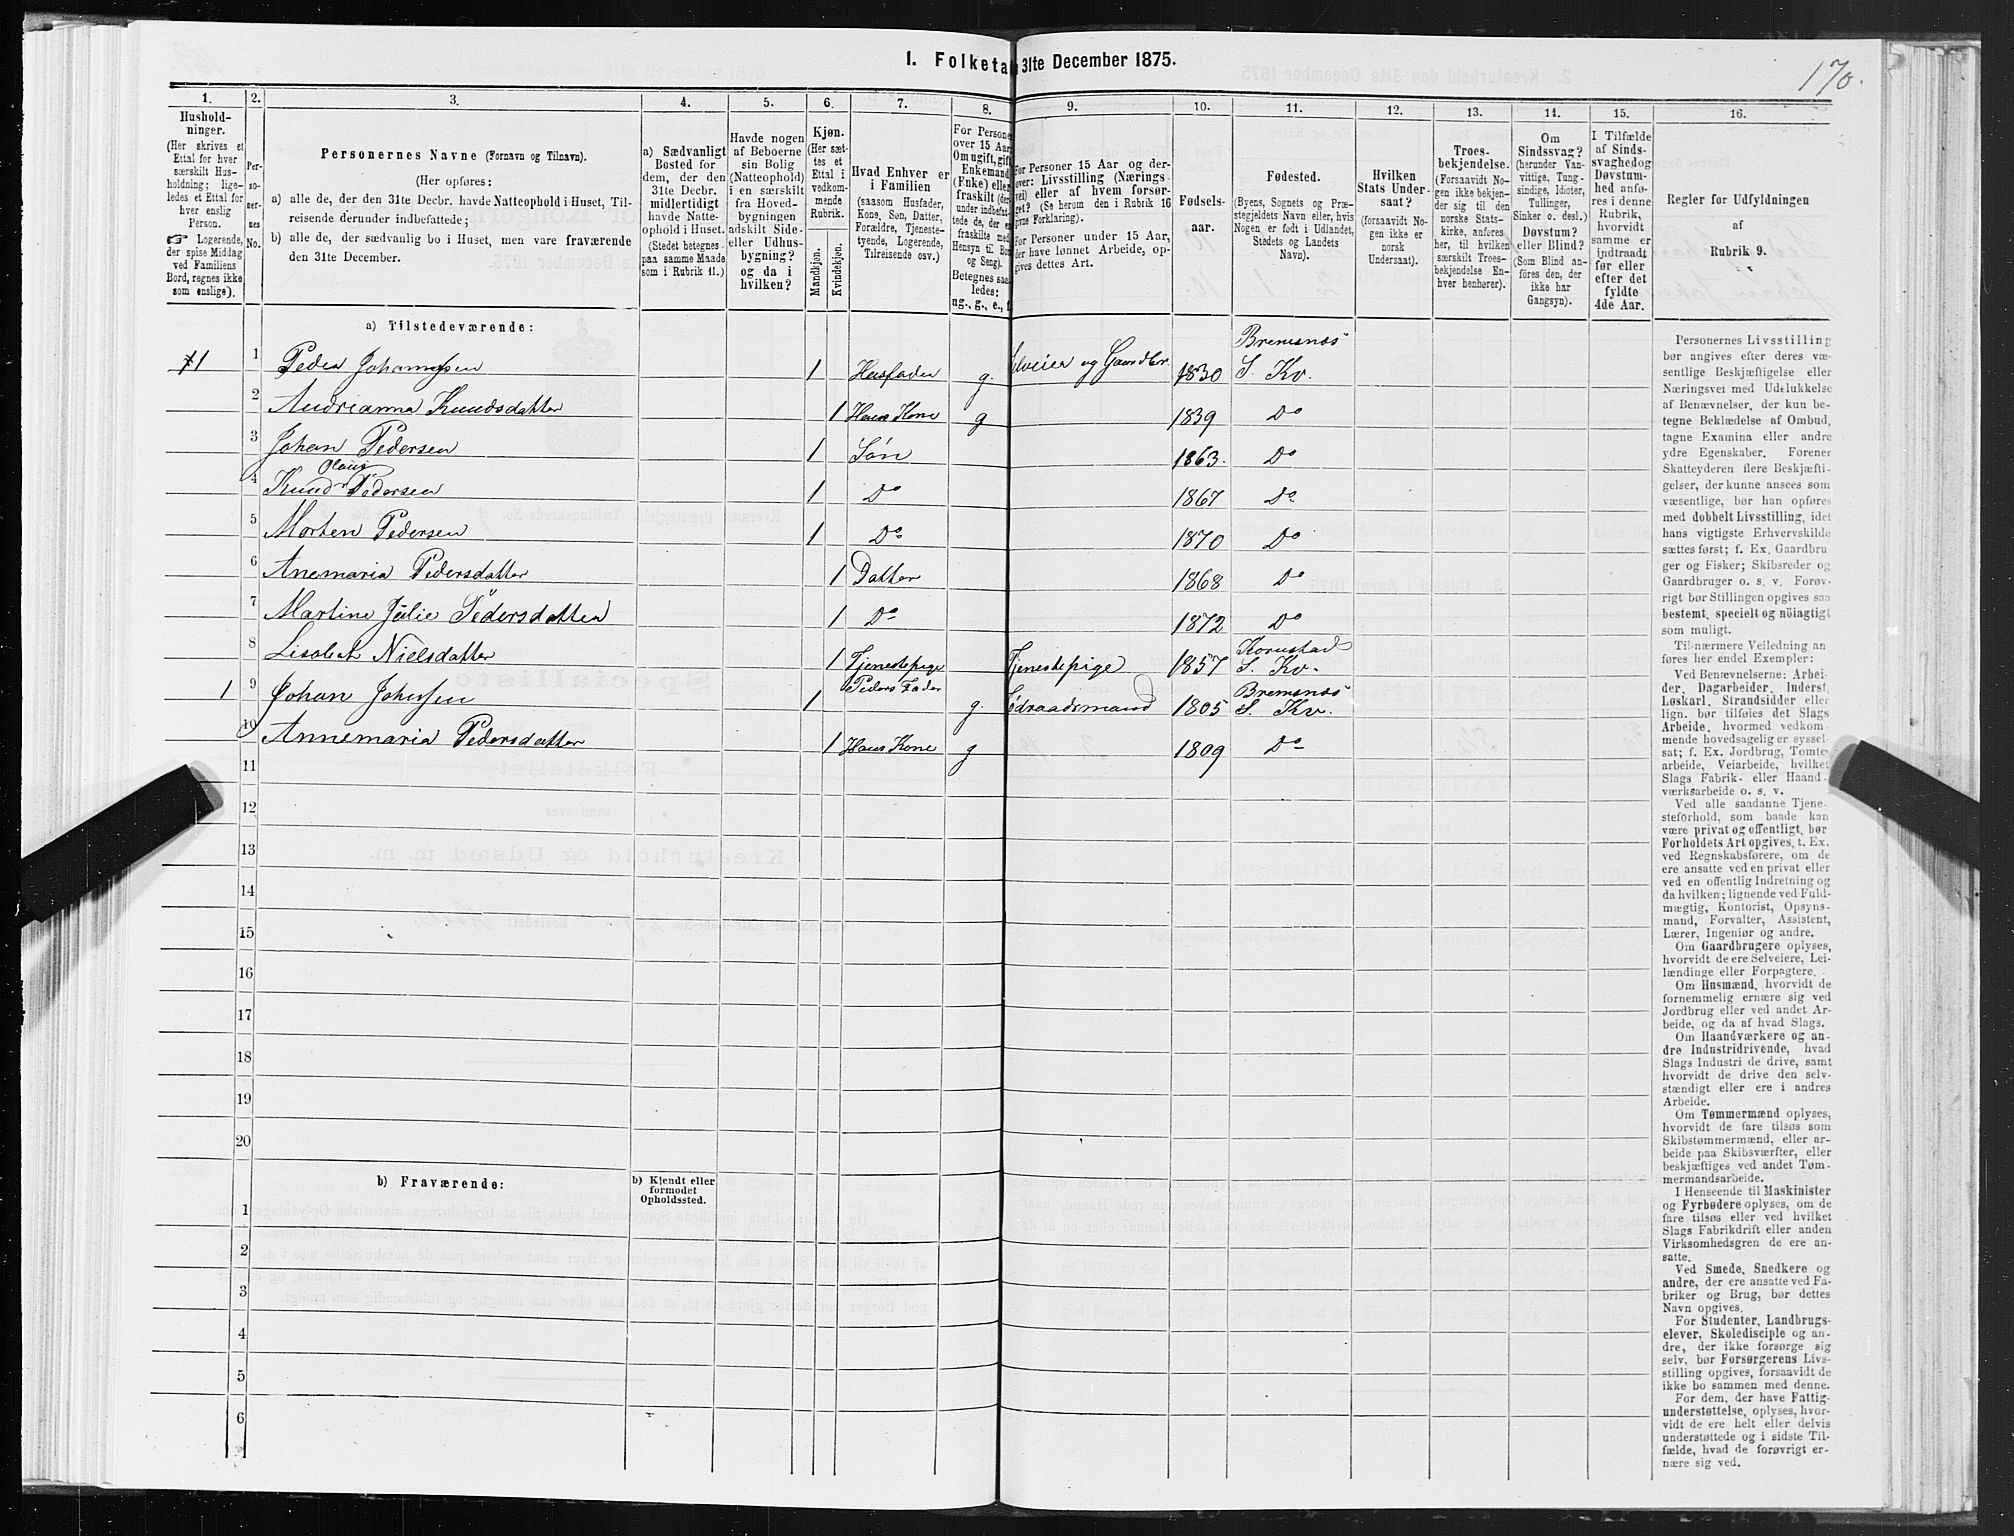 1. Folketa 31te December 1875.
170.
1. 2. 3. 4. 5. 6. 7. 8. 9. 10. 11. 12. 13. 14. 15. 16.
Hushold-
ninger.
(Her skrives et
Ettal for hver
særskilt Hus-
holdning; lige-
ledes et Ettal for
hver enslig
Person.
☞ Logerende,
der spise Middag
ved Familiens
Bord, regnes ikke
som enslige).
Per-
so-
ner-
nes
No.
Personernes Navne (Fornavn og Tilnavn).
(Her opføres:
a) alle de, der den 31te Decbr. havde Natteophold i Huset, Til-
reisende derunder indbefattede;
b) alle de, der sædvanlig bo i Huset, men vare fraværende
den 31te December.
a) Sædvanligt
Bosted for
dem, der den
31te Decbr.
midlertidigt
havde Natte-
ophold i Huset.
(Stedet betegnes
paa samme Maade
som i Rubrik 11.)
Havde nogen
af Beboerne
sin Bolig
(Natteophold)
i en særskilt
fra Hoved-
bygningen
adskilt Side-
eller Udhus-
bygning?
og da i
hvilken?
Kjøn.
(Her sæt-
tes et
Ettal i
vedkom-
mende
Rubrik.
Mandkjøn.
Kvindekjøn.
Hvad Enhver er
i Familien
(saasom Husfader,
Kone, Søn, Datter,
Forældre, Tjeneste-
tyende, Logerende,
Tilreisende osv.)
For Persone
over 15 Aar
Om ugift, gift
Enkemand
(Enke) eller
fraskilt (der-
under indbefat-
tede de, der er
fraskilte med
Hensyn til Bor
og Seng).
Betegnes saa
ledes:
ug., g., e., f
For Personer 15 Aar og der-
over: Livsstilling (Nærings-
vei) eller af hvem forsør-
get? (Se herom den i Rubrik 16
givne Forklaring).
For Personer under 15 Aar,
der have lønnet Arbeide, op-
gives dettes Art.
Fødsels-
aar.
Fødested.
(Byens, Sognets og Præ-
stegjeldets Navn eller, hvis
Nogen er født i Udlandet,
Stedets og Landets
Navn).
Hvilken
Stats Under-
saat?
(forsaavidt No-
gen ikke er
norsk
Undersaat).
Troes-
bekjendelse.
(Forsaavidt No-
gen ikke bekjen-
der sig til den
norske Stats-
kirke, anføres
her, til hvilken
særskilt Troes-
bekjendelse En-
hver henhører).
Om
Sindssvag?
(herunder Van-
vittige, Tung-
sindige, Idioter,
Tullinger,
Sinker o. desl.)
Døvstum?
eller Blind?
(Som Blind an-
føres den, der
ikke har
Gangsyn).
I Tilfælde
af Sinds-
svaghed og
Døvstum-
hed anfø-
res i denne
Rubrik,
hvorvidt
samme er
indtraadt
før eller
efter det
fyldte
4de Aar.
Regler for Udfyldningen
af
Rubrik 9.
a) Tilstedeværende:
1 1 Peder Johannesen 1 Husfader g. Selveier og Gaardbr 1830 Bremsnæs S. Kv.
2 Andrianna Knudsdatter 1 Hans Kone g 1839 Do
3 Johan Pedersen 1 Søn 1863. Do
4 Knud Olaus Pedersen 1 Do 1867 Do
5 Morten Pedersen 1 Do 1870 Do
6 Anemaria Pedersdatter 1 Datter 1868 Do
7 Martine Julie Pedersdatter 1 Do 1872 Do
8 Lisabet Nielsdatter 1 Tjenestepige Tjenestepige 1857 Kornstad S. Kv.
1 9 Johan Johnsen 1 Peders Fader g. Fødraadsmand 1805 Bremsnæs S. Kv.
10 Annemaria Pedersdatter 1 Hans Kone g 1809 Do
11
12
13
14
15
16
17
18
19
20
b) Fraværende:
b) Kjendt eller
formodet
Opholdssted.
1
2
3
4
5
6
Personernes Livsstilling
bør angives efter deres væ-
sentlige Beskjæftigelse eller
Næringsvei med Udelukkelse
af Benævnelser, der kun be-
tegne Beklædelse af Ombud,
tagne Examina eller andre
ydre Egenskaber. Forener
Skatteyderen flere Beskjæfti-
gelser, der kunne ansees som
væsentlige, bør han opføres
med dobbelt Livsstilling, idet
hans vigtigste Erhvervskilde
sættes først; f. Ex. Gaardbru
ger og Fisker; Skibsreder og
Gaardbruger o. s. v. Forøv-
rigt bør Stillingen opgives saa
bestemt, specielt og nöiagtigt
som muligt.
Til nærmere Veiledning an
føres her endel Exempler:
Ved Benævnelserne: Arbei-
der, Dagarbeider, Inderst
Løskarl, Strandsidder eller
lign. bør tilføies det Slags
Arbeide, hvormed vedkom-
mende hovedsagelig er syssel-
sat; f. Ex. Jordbrug, Tomte-
arbeide, Veiarbeide, hvilket
Slags Fabrik- eller Haand-
værksarbeide o. s. v.
Ved alle saadanne Tjene-
steforhold, som baade kan
være privat og offentligt, bør
Forholdets Art opgives, t. Ex.
ved Regnskabsførere, om de
ere ansatte ved en privat eller
ved en offentlig Indretning og
da hvilken; lignende ved Fuld-
mægtig, Kontorist, Opsyns-
mand, Forvalter, Assistent,
Lærer, Ingeniør og andre.
Om Gaardbrugere oplyses,
hvorvidt de ere Selveiere, Lei-
lændinge eller Forpagtere.
Om Husmænd, hvorvidt de
fornemmelig ernære sig ved
Jordbrug eller ved andet Ar-
beide, og da af hvad Slags.
Om Haandværkere og an-
dre Industridrivende, hvad
Slags Industri de drive, samt
hvorvidt de drive den selv-
stændigt eller ere i andres
Arbeide.
Om Tømmermænd oplyses,
hvorvidt de fare tilsøs som
Skibstømmermænd, eller ar-
beide paa Skibsværfter, eller
beskjæftiges ved andet Tøm-
mermandsarbeide.
I Henseende til Maskinister
og Fyrbødere oplyses, om de
fare tilsøs eller ved hvilket
Slags Fabrikdrift eller anden
Virksomhedsgren de ere an-
satte.
Ved Smede, Snedkere og
andre, der ere ansatte ved Fa-
briker og Brug, bør dettes
Navn opgives.
For Studenter, Landbrugs-
elever, Skoledisciple og an-
dre, der ikke forsørge sig
selv, bør Forsørgerens Livs-
stilling opgives, forsaavidt de
ikke bo sammen med denne.
For dem, der have Fattig-
understøttelse, oplyses, hvor-
vidt de ere helt eller delvis
understøttede og i sidste Til-
fælde, hvad de forøvrigt er-
nære sig ved.